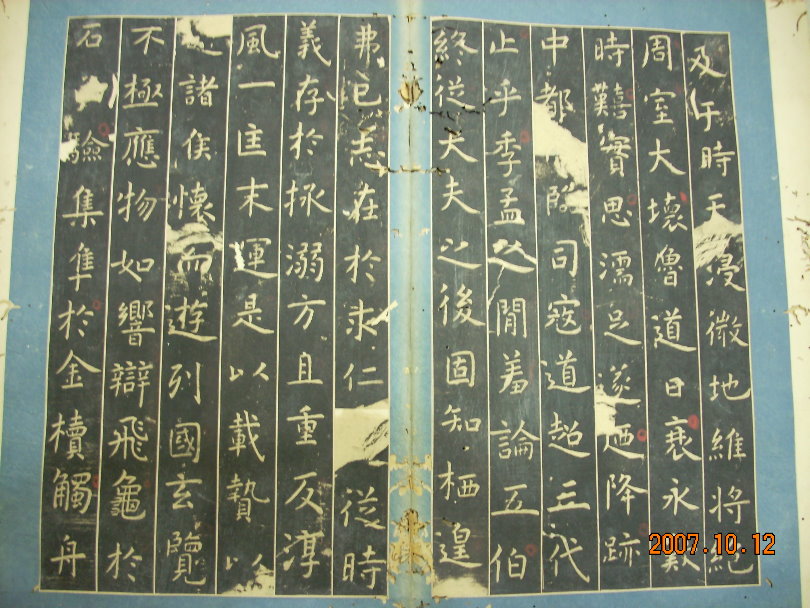 及于時天浸微地維將絕
周室大壞魯道日衰永歎
時艱實思濡足遂迺降跡
中都臨司寇道超三代
止乎季孟之間羞論五伯
終從大夫之後固知栖遑
弗已志在於求仁從時
義存於拯溺方且重反淳
風一匡末運是以載贄以
諸侯懷而遊列國玄覽
不極應物如響辯飛龜於
石驗集隼於金櫝觸舟
2007.10.12